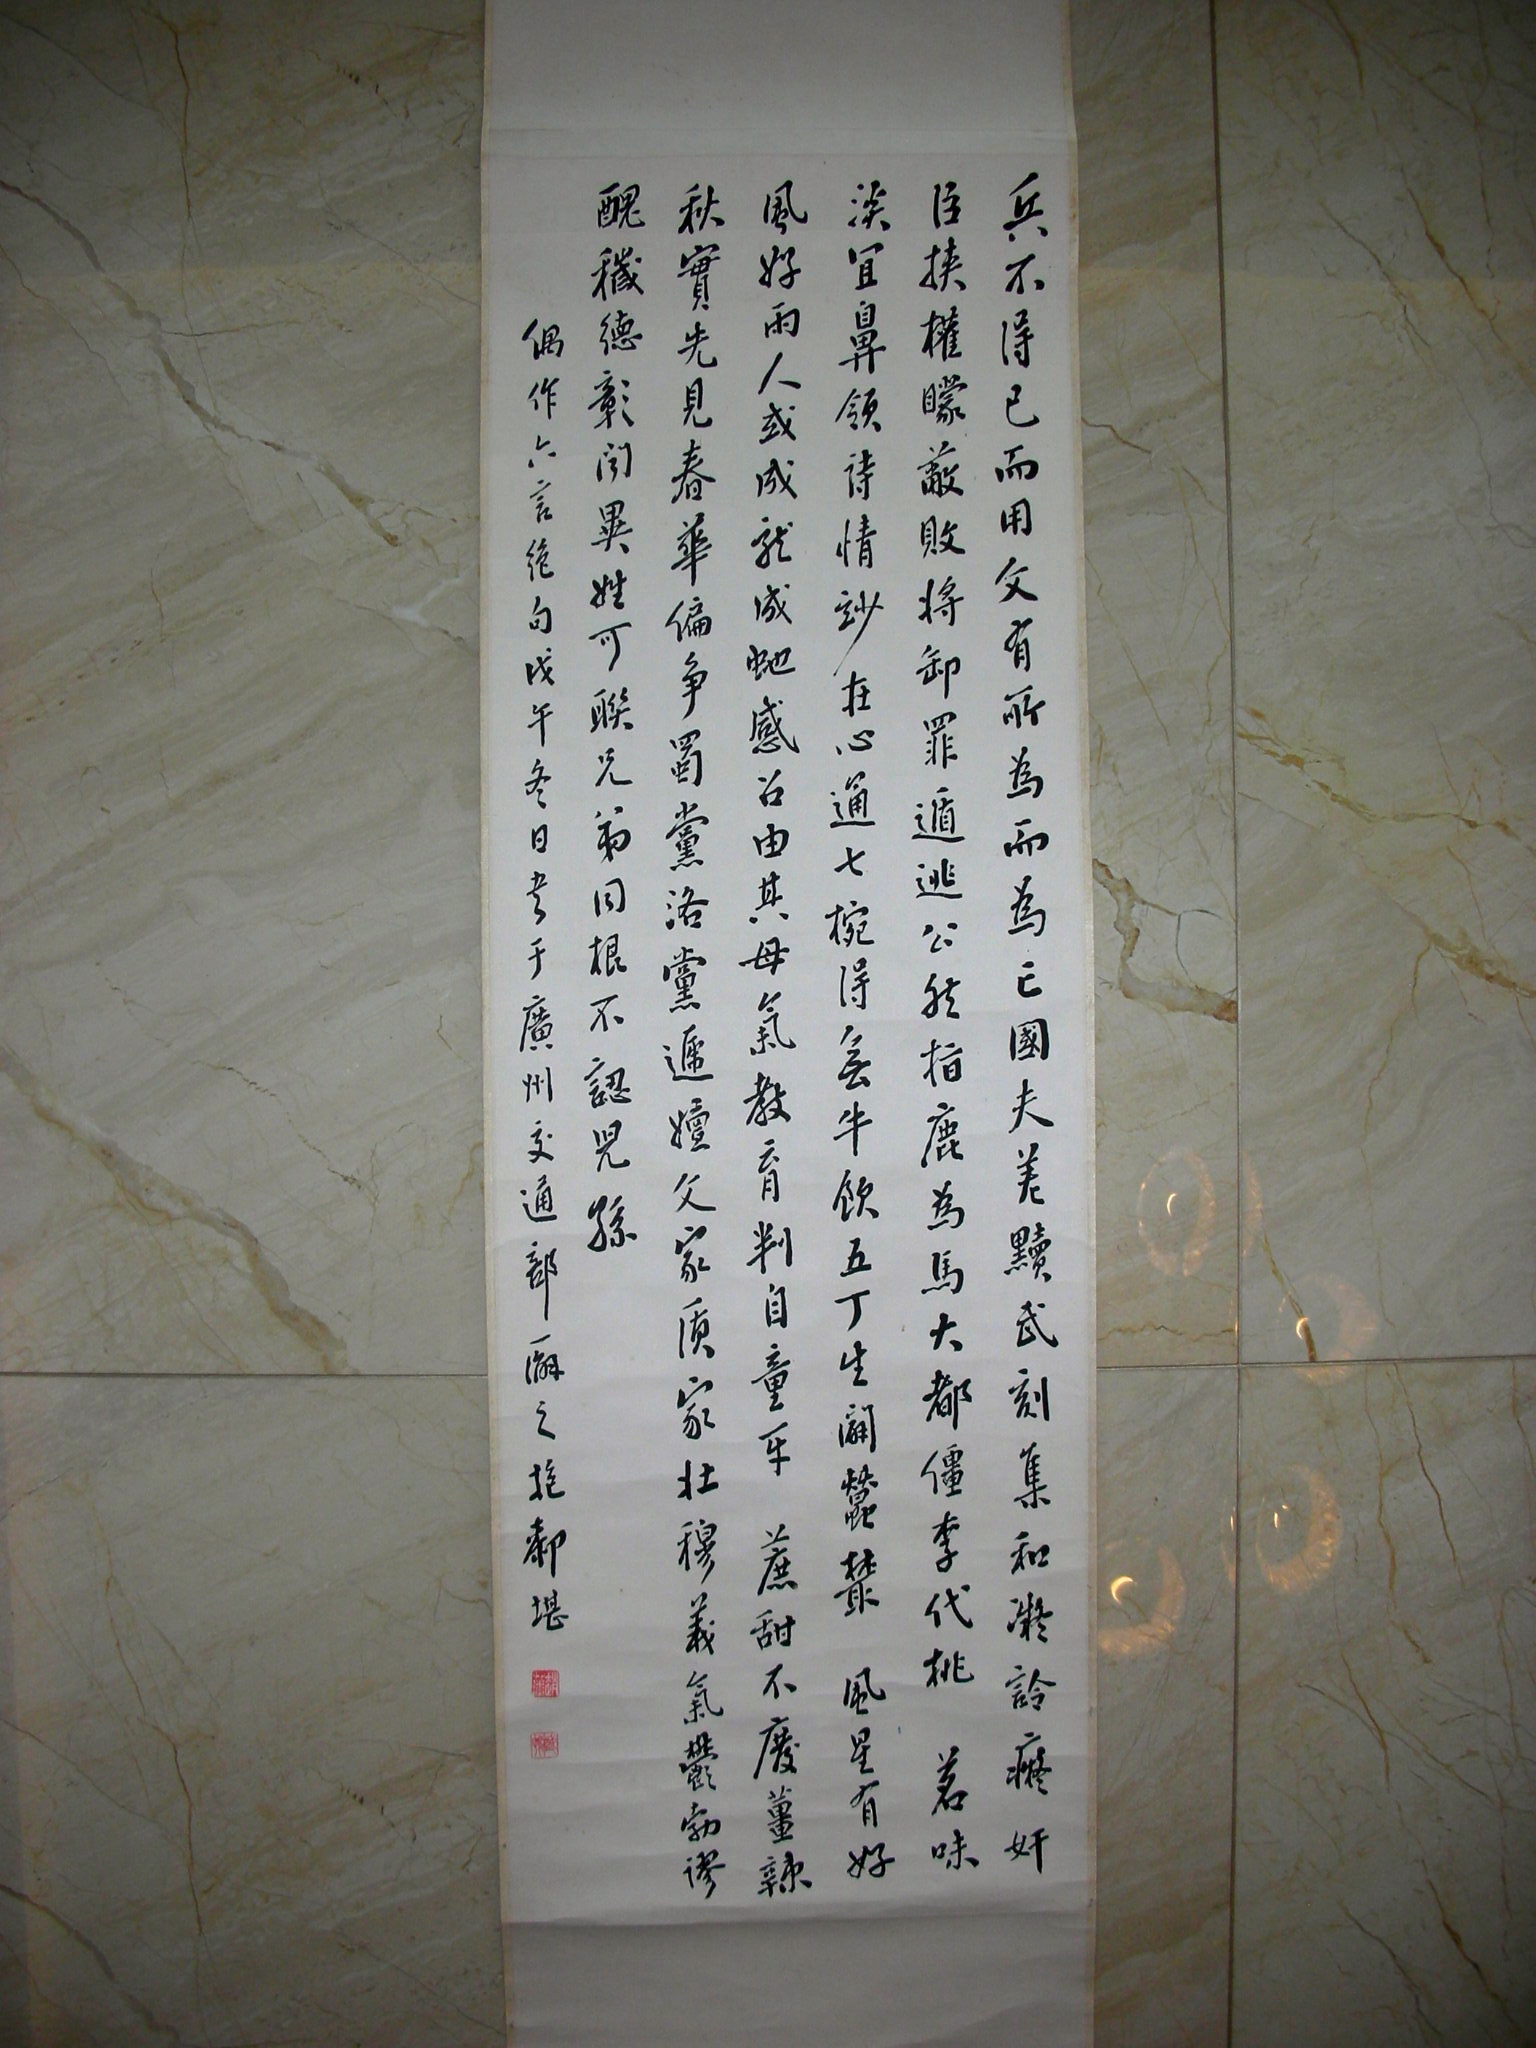 兵不得已而用文有所為而為亡國夫差黷武刻集和凝詅癡奸
臣挾權矇蔽敗將卸罪遁逃公然指鹿為馬大都僵李代桃 茗味
淡宜鼻領詩情妙在心通七椀得無牛飲五丁生闢蠶叢 風星有好
風好雨人或成龍成虵感召由其母氣教育判自童牙 蔗甜不廢薑辣
秋實先見春華偏爭蜀黨洛黨遞嬗父家質家壯穆義氣鬱勃謬
醜穢德彰聞異姓可聯兄弟同根不認兒孫
偶作六言絶句戊午冬日書于廣州交通部 之 堪